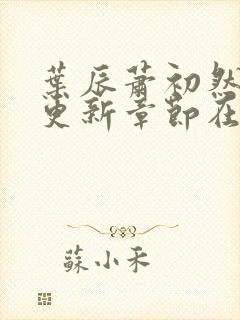 葉辰蕭初然
更新章節在
蘇小禾